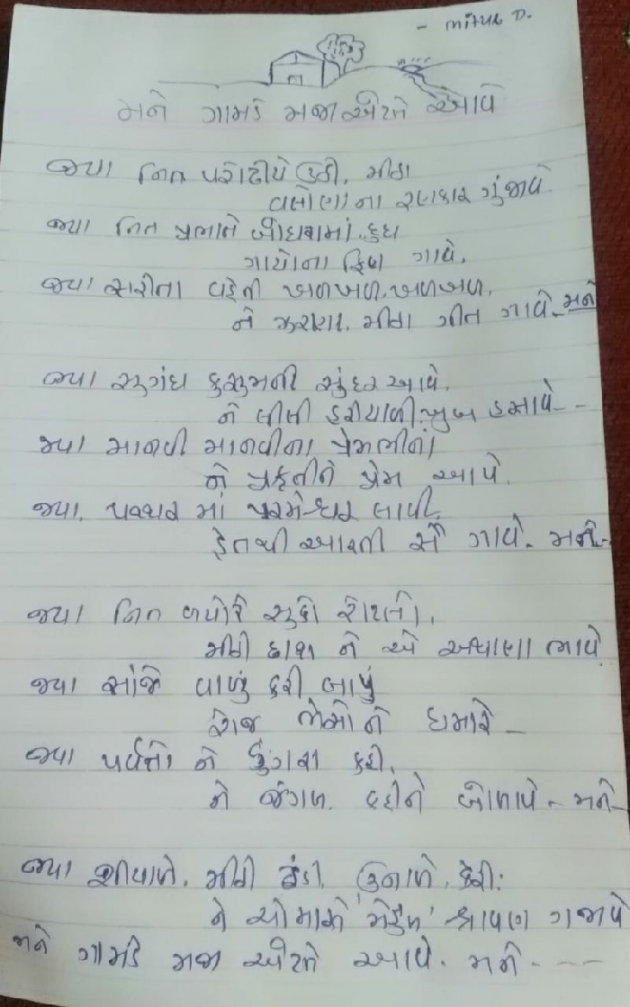 - mitul D.
મને ગામડે મજા એટલે આવે
જ્યા નિત પરોઢીયે ઉઠી, મીઠા
વલોણાના રણકાર ગુંજાવે
જ્યા નિત પ્રભાતે બોઘરામાં, દુધ
ગાયોના ફિણ ગાવે.
જ્યા સરીતા વહેતી ખળખળ, ખળખળ,
ને ઝરણા, મીઠા ગીત ગાવે - મને
જ્યા સુગંધ કુસુમની સુંદર આવે.
ને લીલી હરીયાળી ખુબ હસાવે -
જ્યા માનવી માનવીના પ્રેમભીનાં
ને પ્રકૃતીને પ્રેમ આપે.
જ્યા, પથ્થર માં પરમેશ્વર લાવી,
હેતથી આરતી સૌ ગાવે - મને -
જ્યા નિત બપોરે સુકો રોટલો,
મીઠી છાશ ને એ અથાણા ભાવે
જ્યા સાંજે વાળું કરી બાપું
રોજ ભેંસોને ધમારે -
જ્યા પર્વતો ને ડુંગરા ફરી,
ને જંગલ, દરીને બોલાવે - મને -
જ્યા શીયાળે, મીઠી ઠંડી, ઉનાળે, કેરી:
ને ચોમાસે 'મેહુલ' શ્રાવણ ગજાવે
મને ગામડે મજા એટલે આવે. મને - - -